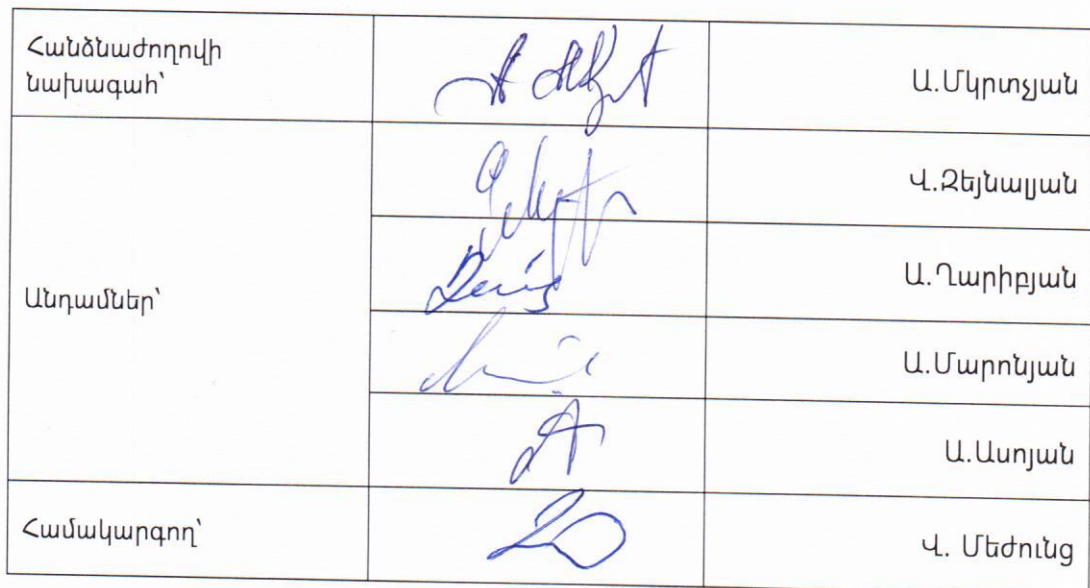 Հանձնաժողովի
նախագահ՝
Ա.Մկրտչյան
Վ.Զեյնալյան
Անդամներ՝
Ա.Ղարիբյան
Ա.Մարոնյան
Ա.Ասոյան
Համակարգող՝
Վ. Մեժունց